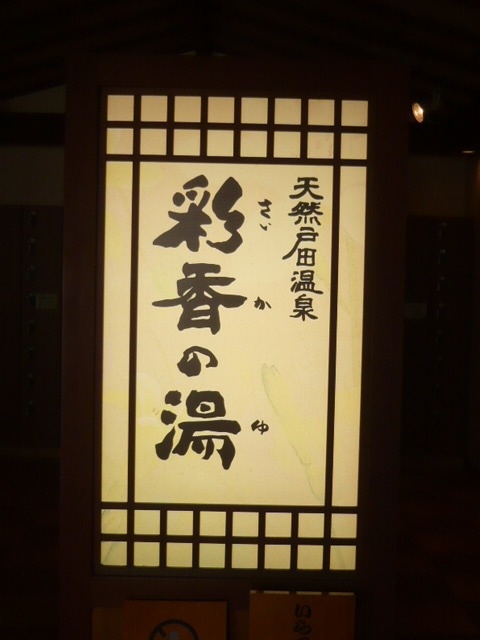 天然戸田温泉
彩香の湯
さい か ゆ
いら